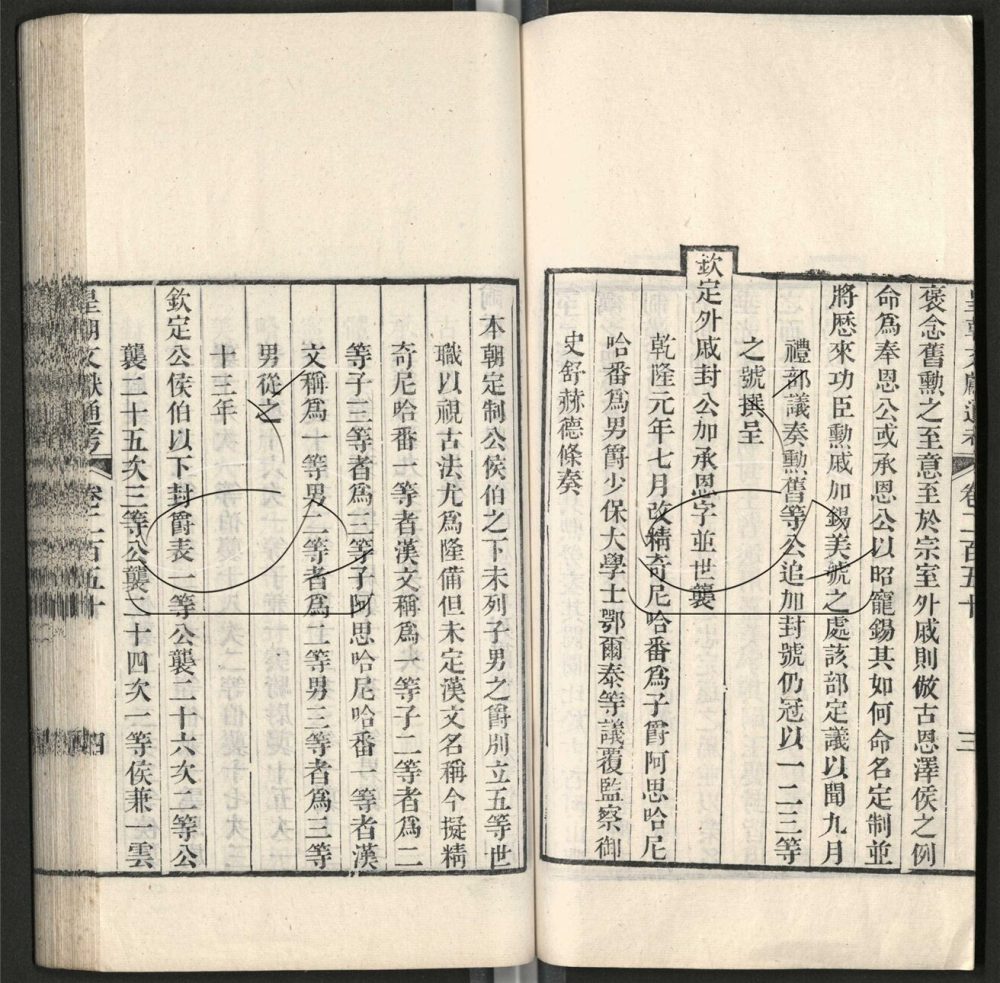 皇朝文獻通考 卷二百五十 三
褒念舊勳之至意至於宗室外戚則倣古恩澤侯之例
命為奉恩公或承恩公以昭寵錫其如何命名定制並
將歷來功臣勳戚加錫美號之處該部定議以聞九月
禮部議奏勳舊等公追加封號仍冠以一二三等
之號撰呈
欽定外戚封公加承恩字並世襲
乾隆元年七月改精奇尼哈番為子爵阿思哈尼
哈番為男爵少保大學士鄂爾泰等議覆監察御
史舒赫德條奏
本朝定制公侯伯之下未列子男之爵別立五等世
職以視古法尤為隆備但未定漢文名稱今擬精
奇尼哈番一等者漢文稱為一等子二等者為二
等子三等者為三等子阿思哈尼哈番一等者漢
文稱為一等男二等者為二等男三等者為三等
男從之
十三年
欽定公侯伯以下封爵表一等公襲二十六次二等公
襲二十五次三等公襲二十四次一等侯兼一雲
皇朝文獻通考 卷二百五十 四